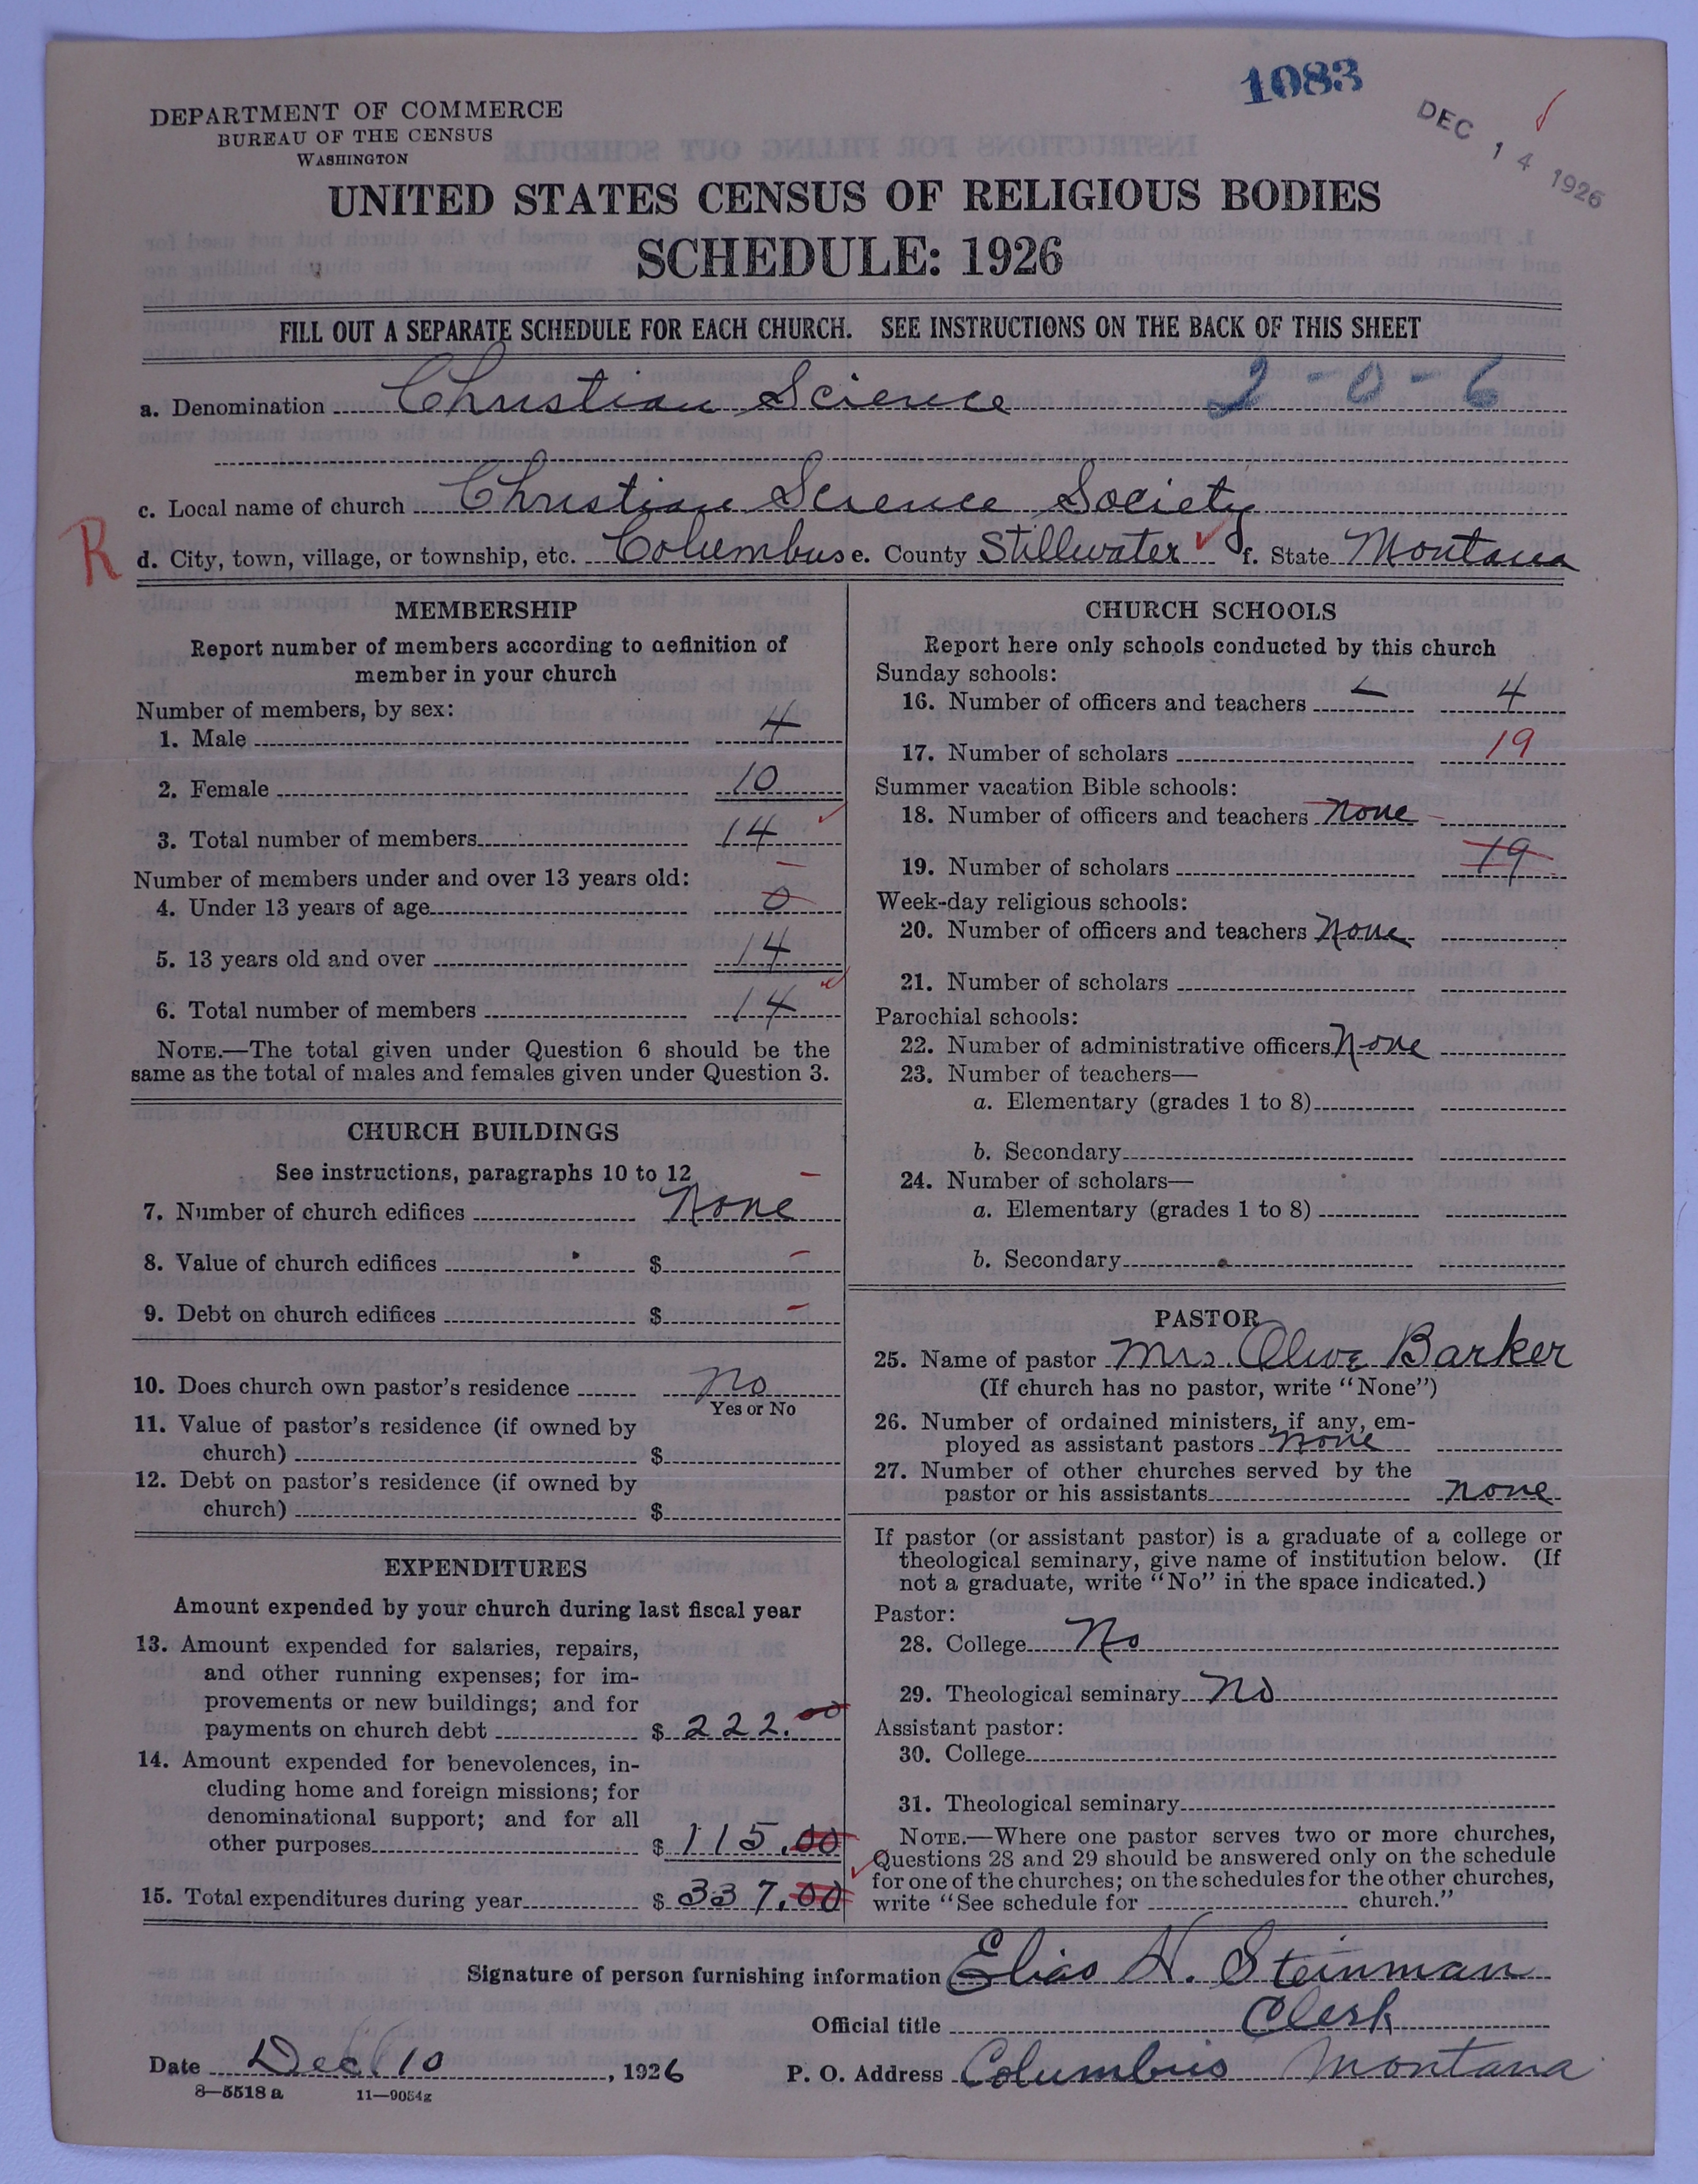 1083
DEC 14 1926
DEPARTMENT OF COMMERCE
BUREAU OF THE CENSUS
WASHINGTON
UNITED STATES CENSUS OF RELIGIOUS BODIES
SCHEDULE: 1926
FILL OUT A SEPARATE SCHEDULE FOR EACH CHURCH. SEE INSTRUCTIONS ON THE BACK OF THIS SHEET
a. Denomination Christian Science 2-0-6
c. Local name of church Christian Science Society
R d. City, town, village, or township, etc. Columbus e. County Stillwater f. State Montana
MEMBERSHIP
Report number of members according to definition of
member in your church
Number of members, by sex:
1. Male 4
2. Female 10
3. Total number of members 14
Number of members under and over 13 years old:
4. Under 13 years of age 0
5. 13 years old and over 14
6. Total number of members 14
NOTE.—The total given under Question 6 should be the
same as the total of males and females given under Question 3.
CHURCH BUILDINGS
See instructions, paragraphs 10 to 12
7. Number of church edifices None
8. Value of church edifices $
9. Debt on church edifices $
10. Does church own pastor's residence No
Yes or No
11. Value of pastor's residence (if owned by
church) $
12. Debt on pastor's residence (if owned by
church) $
EXPENDITURES
Amount expended by your church during last fiscal year
13. Amount expended for salaries, repairs,
and other running expenses; for im-
provements or new buildings; and for
payments on church debt $ 222.00
14. Amount expended for benevolences, in-
cluding home and foreign missions; for
denominational support; and for all
other purposes $ 115.00
15. Total expenditures during year $ 337.00
CHURCH SCHOOLS
Report here only schools conducted by this church
Sunday schools:
16. Number of officers and teachers 4
17. Number of scholars 19
Summer vacation Bible schools:
18. Number of officers and teachers none
19. Number of scholars 19
Week-day religious schools:
20. Number of officers and teachers None
21. Number of scholars
Parochial schools:
22. Number of administrative officers None
23. Number of teachers—
a. Elementary (grades 1 to 8)
b. Secondary
24. Number of scholars—
a. Elementary (grades 1 to 8)
b. Secondary
PASTOR
25. Name of pastor Mrs. Olive Barker
(If church has no pastor, write "None")
26. Number of ordained ministers, if any, em-
ployed as assistant pastors none
27. Number of other churches served by the
pastor or his assistants none
If pastor (or assistant pastor) is a graduate of a college or
theological seminary, give name of institution below. (If
not a graduate, write "No" in the space indicated.)
Pastor:
28. College No
29. Theological seminary No
Assistant pastor:
30. College
31. Theological seminary
NOTE.—Where one pastor serves two or more churches,
Questions 28 and 29 should be answered only on the schedule
for one of the churches; on the schedules for the other churches,
write "See schedule for church."
Signature of person furnishing information Elias H. Steinman
Official title Clerk
Date Dec. 10, 1926 P. O. Address Columbus Montana
8—5518 a 11—9054g